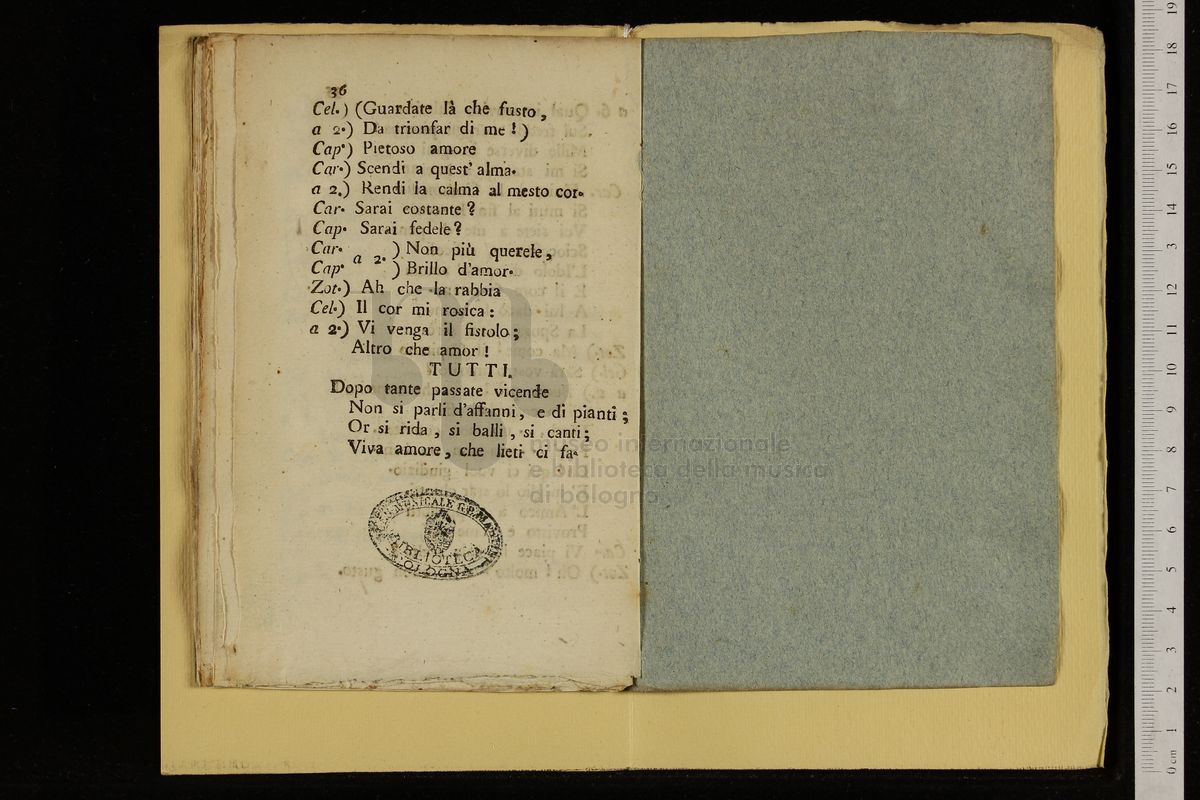 36
Cel.) (Guardate là che fusto,
a 2.) Da trionfar di me!)
Cap.) Pietoso amore
Car.) Scendi a quest' alma.
a 2.) Rendi la calma al mesto cor.
Car. Sarai costante?
Cap. Sarai fedele?
Car. a 2. ) Non più querele,
Cap. ) Brillo d'amor.
Zot.) Ah che la rabbia
Cel.) Il cor mi rosica:
a 2.) Vi venga il fistolo;
Altro che amor!
TUTTI.
Dopo tante passate vicende
Non si parli d'affanni, e di pianti;
Or si rida, si balli, si canti;
Viva amore, che lieti ci fa.
museo internazionale
e biblioteca della musica
di bologna
MUSICALE G.B. MARTINI
BIBLIOTECA
BOLOGNA
0 cm 1 2 3 4 5 6 7 8 9 10 11 12 13 14 15 16 17 18 19